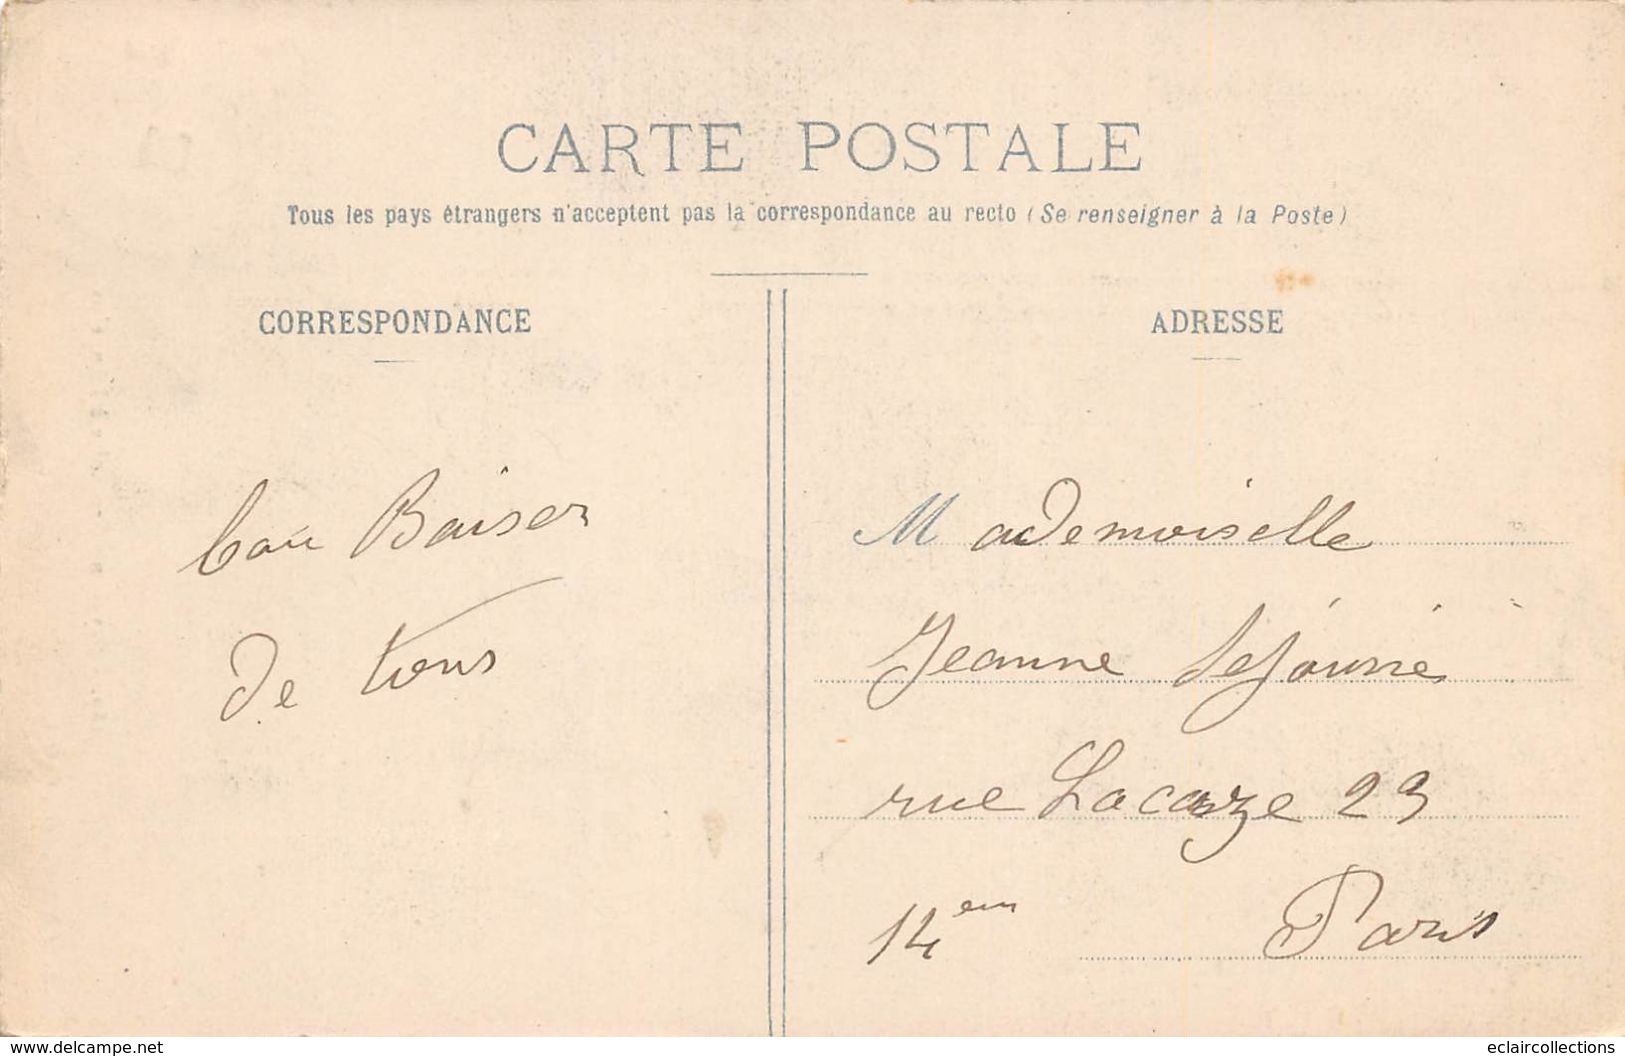 CARTE POSTALE
Tous les pays étrangers n'acceptent pas la correspondance au recto (Se renseigner à la Poste)
CORRESPONDANCE
Baiser
De tous
ADRESSE
Mademoiselle
Jeanne
rue Lacaze 23
14em Paris
www.delcampe.net
eclaircollections